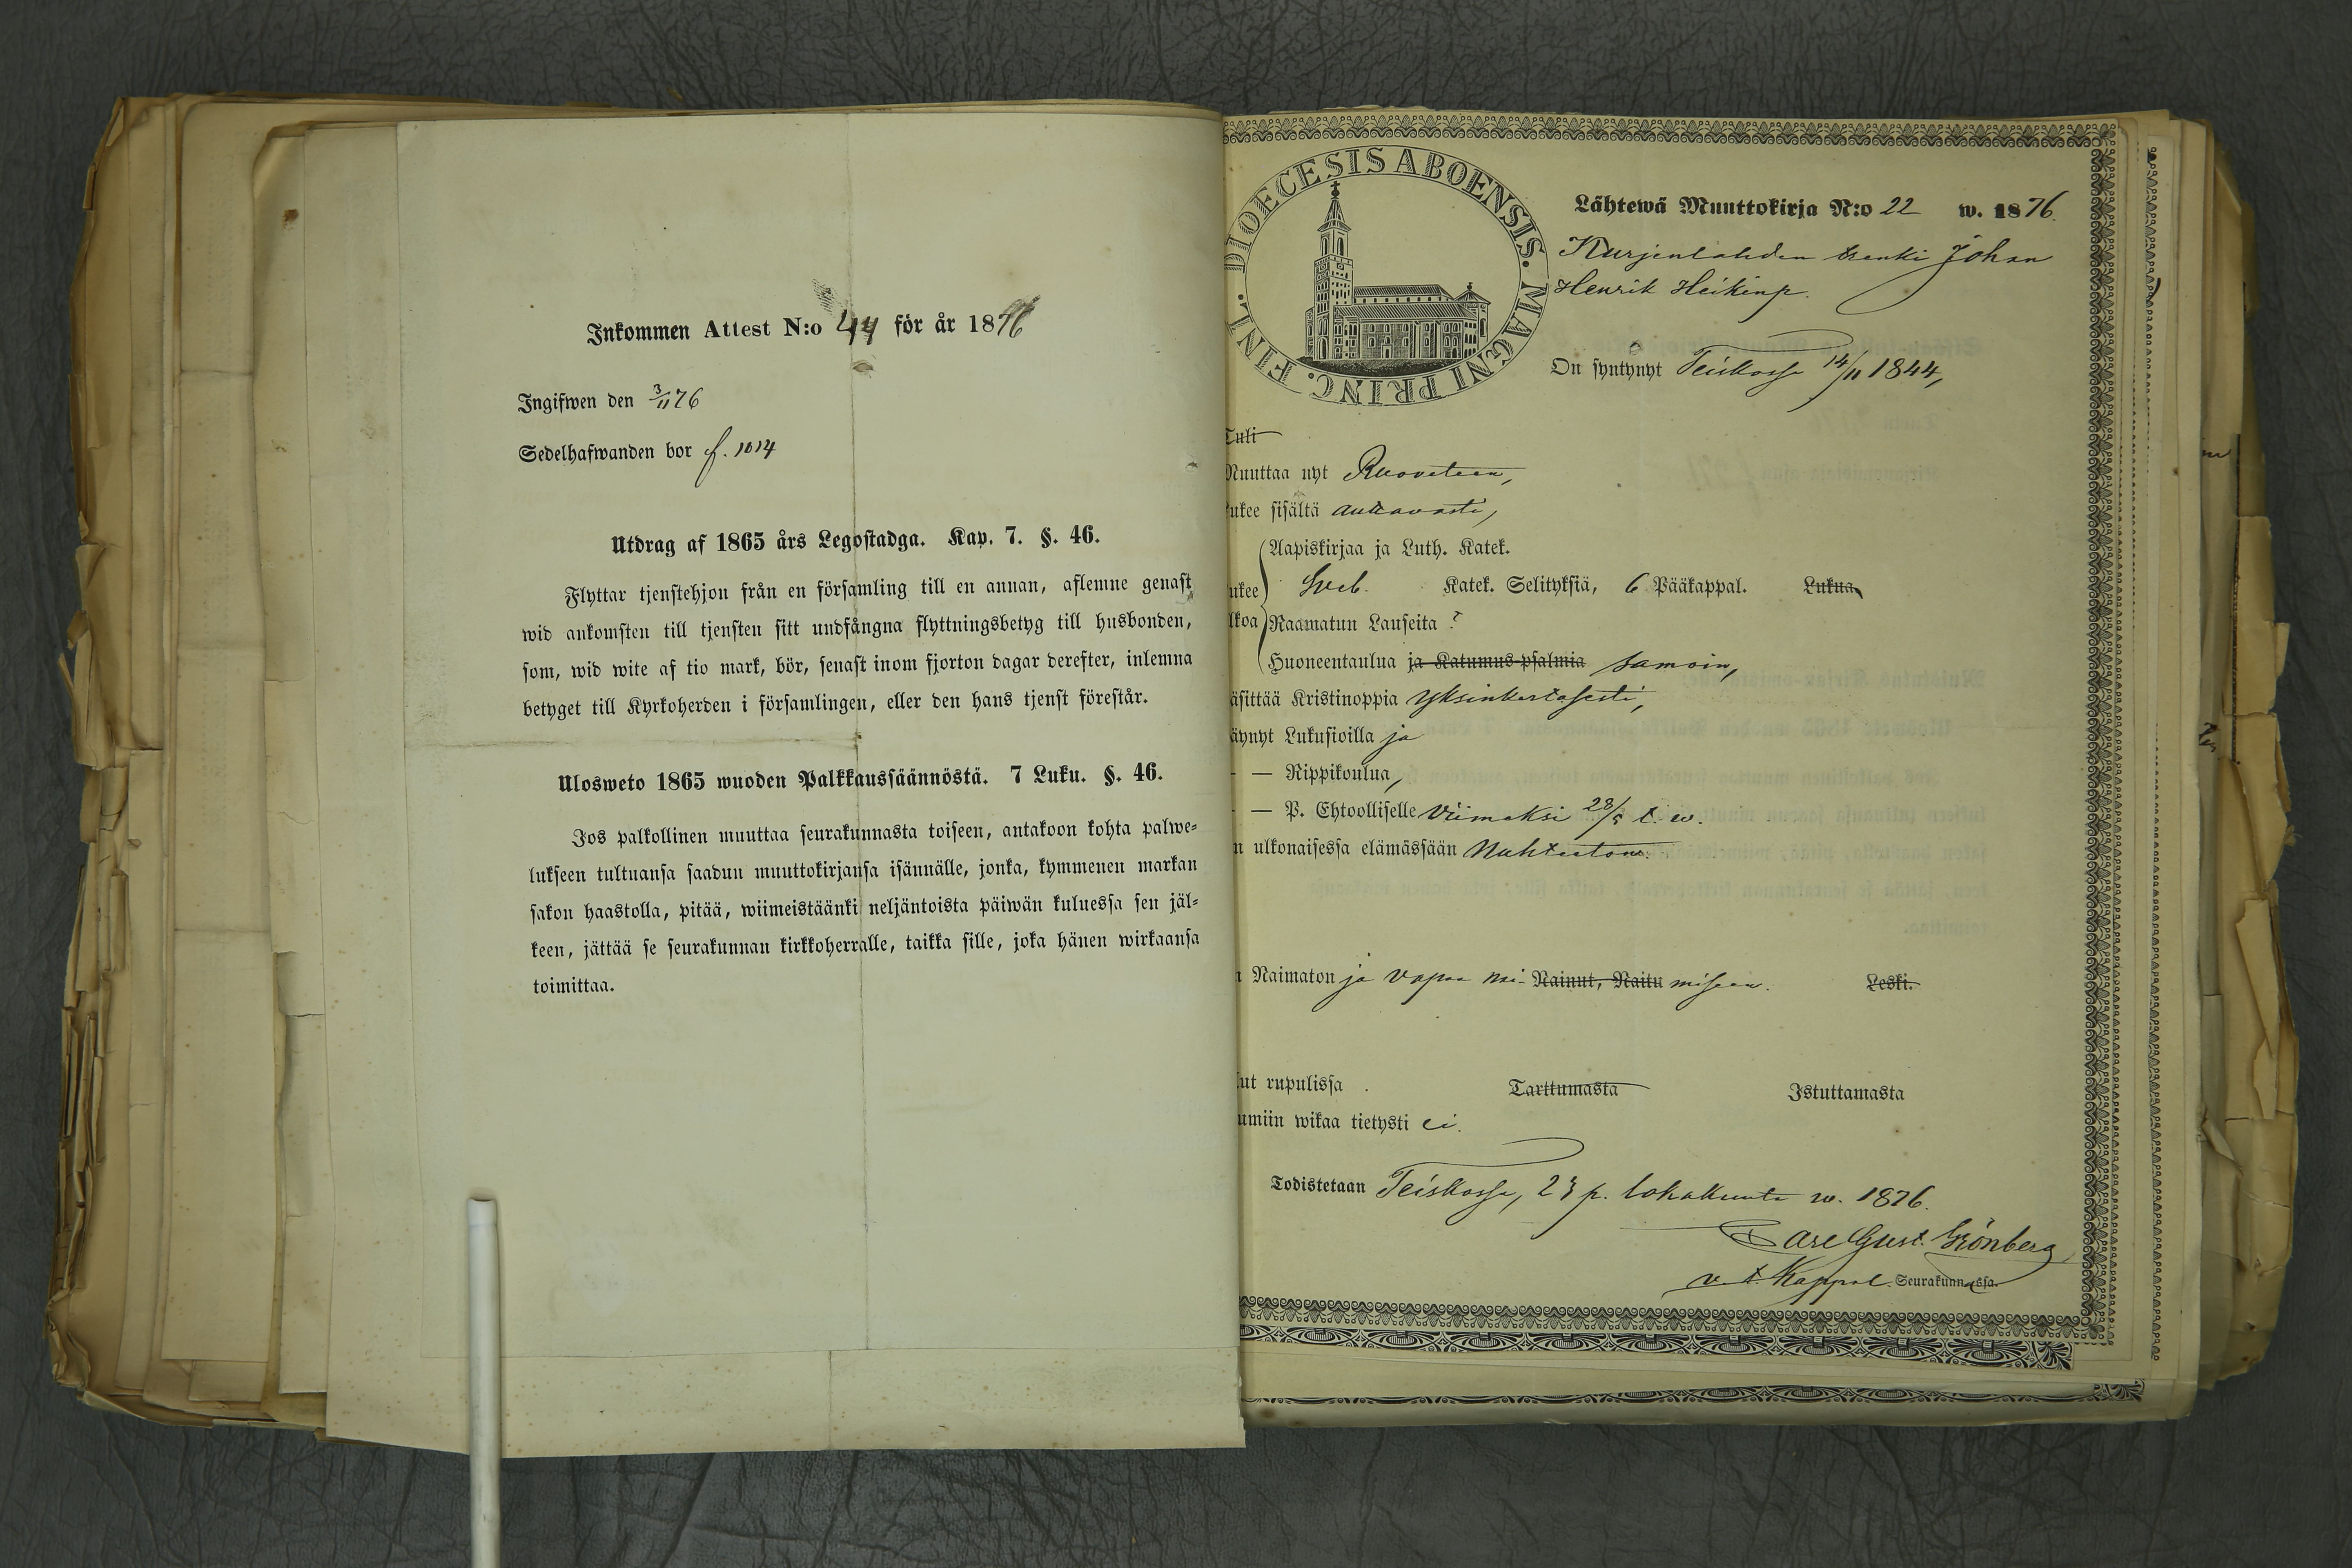 Inkommen Attest N:o 44 för år 1876
Ingifwen den 3/11 76
Sedelhafwanden bor f. 1014
Utdrag af 1865 års Legostadga. Kap. 7. §. 46.
Flyttar tjenstehjon från en församling till en annan, aflemne genast
wid ankomsten till tjensten sitt undfångna flyttningsbetyg till husbonden,
som, wid wite af tio mark, bör, senast inom fjorton dagar derefter, inlemna
betyget till Kyrkoherden i församlingen, eller den hans tjenst förestår.
Ulosweto 1865 wuoden Palkkaussäännöstä. 7 Luku. §. 46.
Jos palkollinen muuttaa seurakunnasta toiseen, antakoon kohta palwe-
lukseen tultuansa saadun muuttokirjansa isännälle, jonka, kymmenen markan
sakon haastolla, pitää, wiimeistäänki neljäntoista päiwän kuluessa sen jäl-
keen, jättää se seurakunnan kirkkoherralle, taikka sille, joka hänen wirkaansa
toimittaa.
DIOECESIS ABOENSIS. MAGNI PRINC. FINL.
Lähtewä Muuttokirja N:o 22 w. 1876.
Kurjenlahden renki Johan
Henrik Heikinp.
On syntynyt Teiskossa 14/11 1844,
Tuli
Muuttaa nyt Ruoveteen,
ukee sisältä auttavasti,
Aapiskirjaa ja Luth. Katek.
ukee Sveb. Katek. Selityksiä, 6 Pääkappal. Lukua,
lkoa Raamatun Lauseita ?
Huoneentaulua ja Katumus-psalmia samoin,
äsittää Kristinoppia yksinkertasesti,
äynyt Lukusioilla ja
- — Rippikoulua,
- — P. Ehtoolliselle viimeksi 28/5 t. w.
n ulkonaisessa elämässään Nuhteeton.
Naimaton ja vapaa nai- Nainut, Naitu miseen. Leski.
ut rupulissa . Tarttumasta Istuttamasta
umiin wikaa tietysti ei.
Todistetaan Teiskossa, 23 p. lokakuuta w. 1876.
Carl Gust. Grönberg
v. t. Kappal. Seurakunnassa.